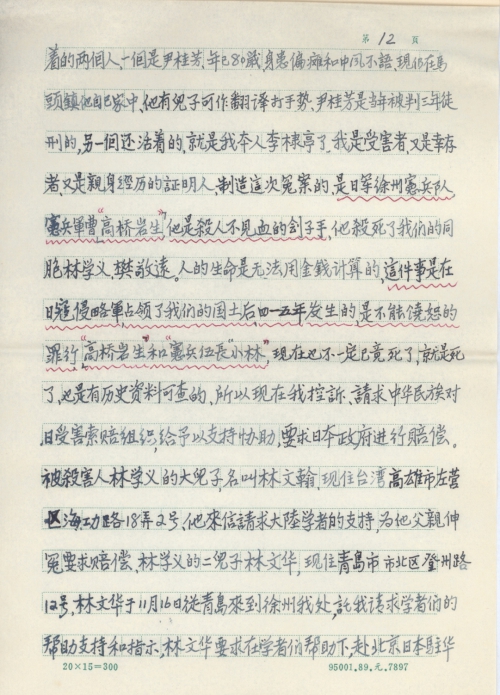 第 12 頁
着的两個人、一個是尹桂芳、年已80歲、身患偏瘫和中风不語、現仍在馬
頭鎮他自己家中、他有兒子可作翻译打手势、尹桂芳是当年被判三年徒
刑的,另一個还活着的,就是我本人李棣亭了。我是受害者、又是幸存
者、又是親身經历的証明人、制造這次冤案的,是日军徐州憲兵队
憲兵軍曹“高桥岩生”他是殺人不見血的刽子手、他殺死了我們的同
胞林学义、樊敬遠。人的生命是无法用金錢計算的,這件事是在
日寇侵略軍占领了我们的国土后,四一五年发生的,是不能饶恕的
罪行,“高桥岩生”和憲兵伍長“小林”,現在也不一定已竟死了,就是死
了,也是有历史資料可查的、所以現在我控訴、請求中华民族对
日受害索赔组织,给予以支持协助,要求日本政府進行赔偿。
被殺害人林学义的大兒子,名叫林文翰、現住台湾高雄市左营
区海功路18弄2号、他來信請求大陸学者的支持,为他父親伸
冤要求赔偿、林学义的二兒子林文华,現住青島市市北区登州路
12号、林文华于11月16日從青島來到徐州我处,託我请求学者们的
帮助支持和指示,林文华要求在学者们帮助下、赴北京日本駐华
20×15=300
95001.89.元.7897